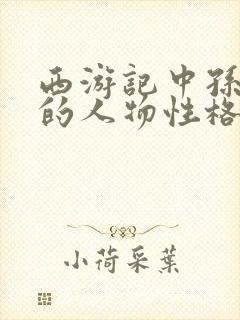 西游记中孙
的人物性格
小荷采葉